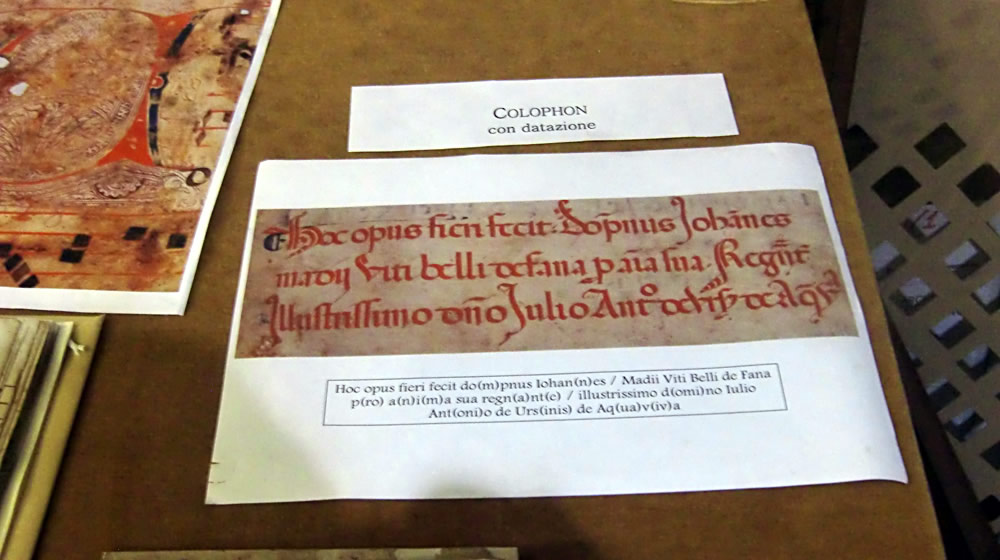 COLOPHON
con datazione
Hoc opus fieri fecit dop̄nus Johān̄es
madij Viti belli de fana p āīa sua Regn̄t̄e
Illustrissimo dn̄o Julio Ant° de
Hoc opus fieri fecit do(m)pnus Iohan(n)es / Madii Viti Belli de Fana
p(ro) a(n)i(m)a sua regn(a)nt(e) / illustrissimo d(omi)no Iulio
Ant(oni)o de Urs(inis) de Aq(ua)v(iv)a